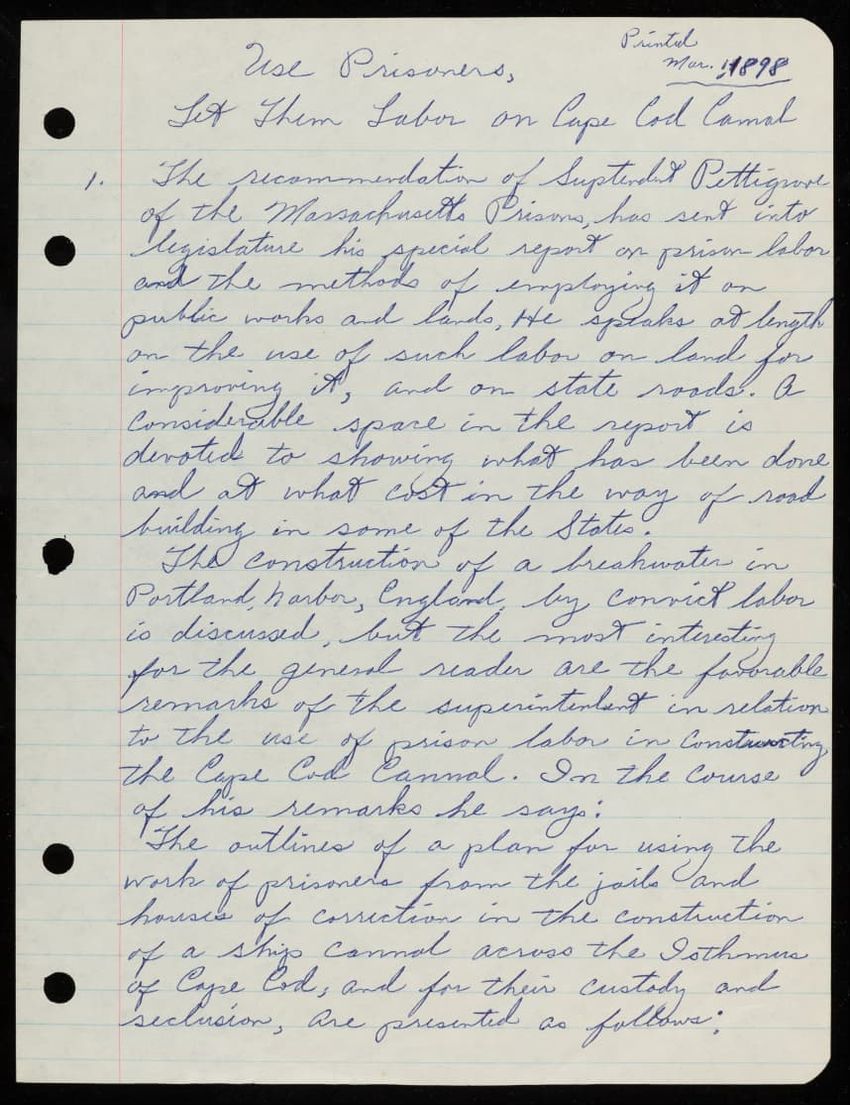 Printed
Mar. 1898
Use Prisoners,
Let Them Labor on Cape Cod Camal
1. The recommendation of Suptendet Pettigrove
of the Massachusetts Prisons, has sent into
legislature his special report on prison labor
and the methods of employing it on
public works and lands, He speaks at length
on the use of such labor on land for
improving it, and on state roads. A
considerable space in the report is
devoted to showing what has been done
and at what cost in the way of road
building in some of the States.
The construction of a breakwater in
Portland, harbor, England, by convict labor
is discussed, but the most interesting
for the general reader are the favorable
remarks of the superintendent in relation
to the use of prison labor in constructing
the Cape Cod Cannal. In the course
of his remarks he says:
The outlines of a plan for using the
work of prisoners from the jails and
houses of correction in the construction
of a ship cannal across the Isthmus
of Cape Cod, and for their custody and
seclusion, are presented as follows: